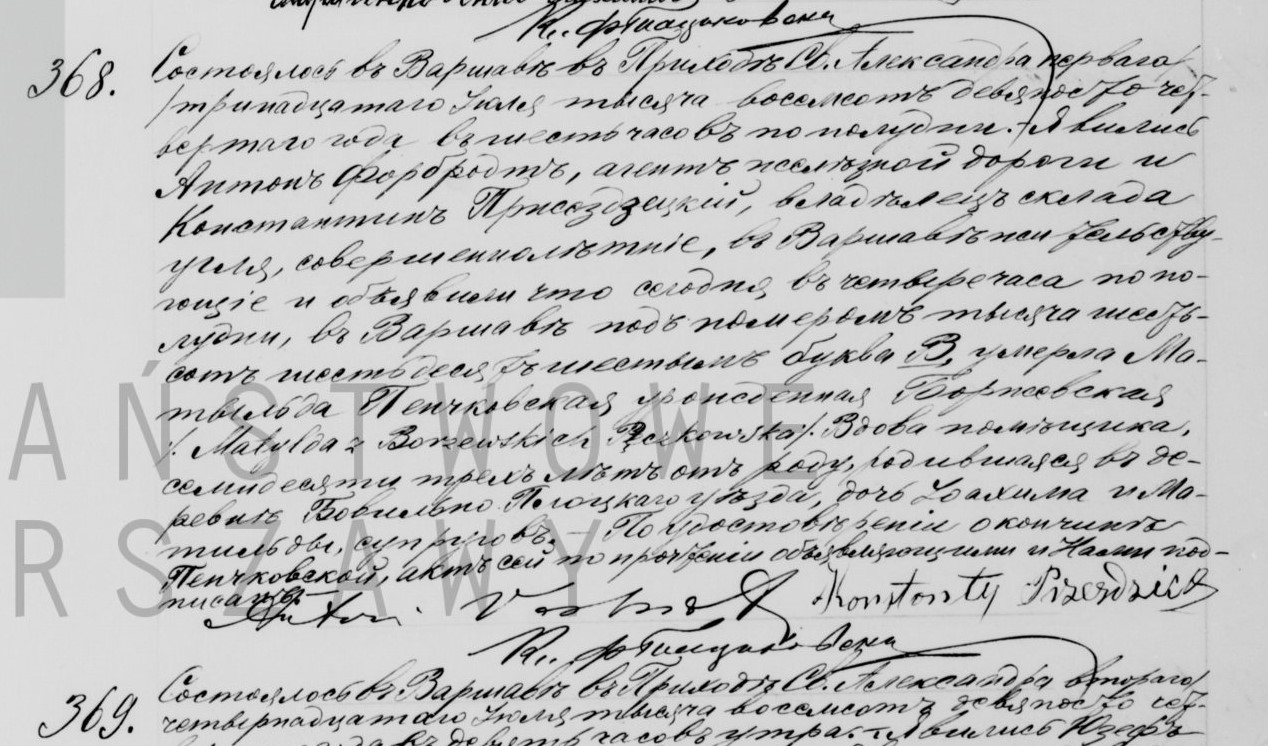 К.
368. Состоялось въ Варшавѣ въ Приходѣ Св. Александра перваго/
/тринадцатаго Іюля тысяча восемсотъ девяносто чет-
вертаго года въ шесть часовъ по полудни. - Явились
Антонъ Форбродтъ, агентъ желѣзной дороги и
Константинъ владѣлецъ склада
угля, совершеннолѣтніе, въ Варшавѣ жительству-
ющіе и объявили что сегодня, въ четыре часа по по-
лудни, въ Варшавѣ подъ номеромъ тысяча шесть-
сотъ шестьдесятъ шестымъ буква В, умерла Ма-
тыльда Пенчковская урожденная Боржевская
/. Matylda z Borzewskich Pęczkowska/. Вдова помѣщика,
семидесяти трехъ лѣтъ отъ роду, родившаяся въ де-
ревнѣ Плоцкаго уѣзда, дочь Іоахима и Ма-
тильды, супруговъ. - По удостовѣреніи о кончинѣ
Пенчковской, актъ сей по прочтеніи объявляющими и Нами под-
писанъ.
Antoni Konstanty
К.
369. Состоялось въ Варшавѣ въ Приходѣ Св. Александра втораго/
четвернадцатаго Іюля тысяча восемсотъ девяносто чет-
въ девять часовъ утра. - Явились Юзефъ
AŃSTWOWE
RSZAWY